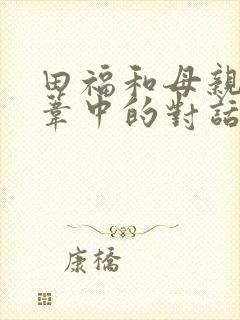 田福和母親
葦中的對話
康橋